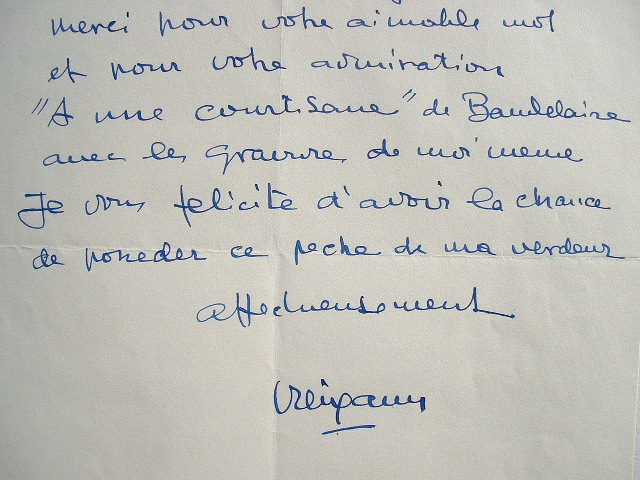 merci pour votre aimable mot
et pour votre admiration
"A une courtisane" de Baudelaire
avec les gravures de moi meme
Je vous felicite d'avoir la chance
de posseder ce peche de ma verdeur
affectueusement